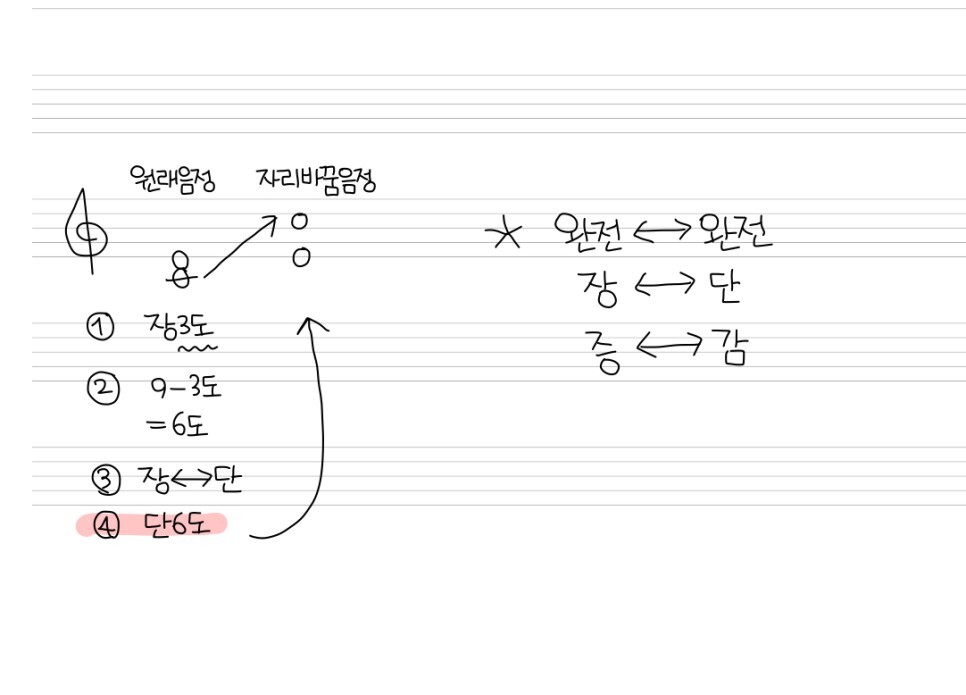 원래음정 자리바꿈음정
① 장3도
② 9-3도
=6도
③ 장↔단
④ 단6도
* 완전 ↔ 완전
장 ↔ 단
증 ↔ 감